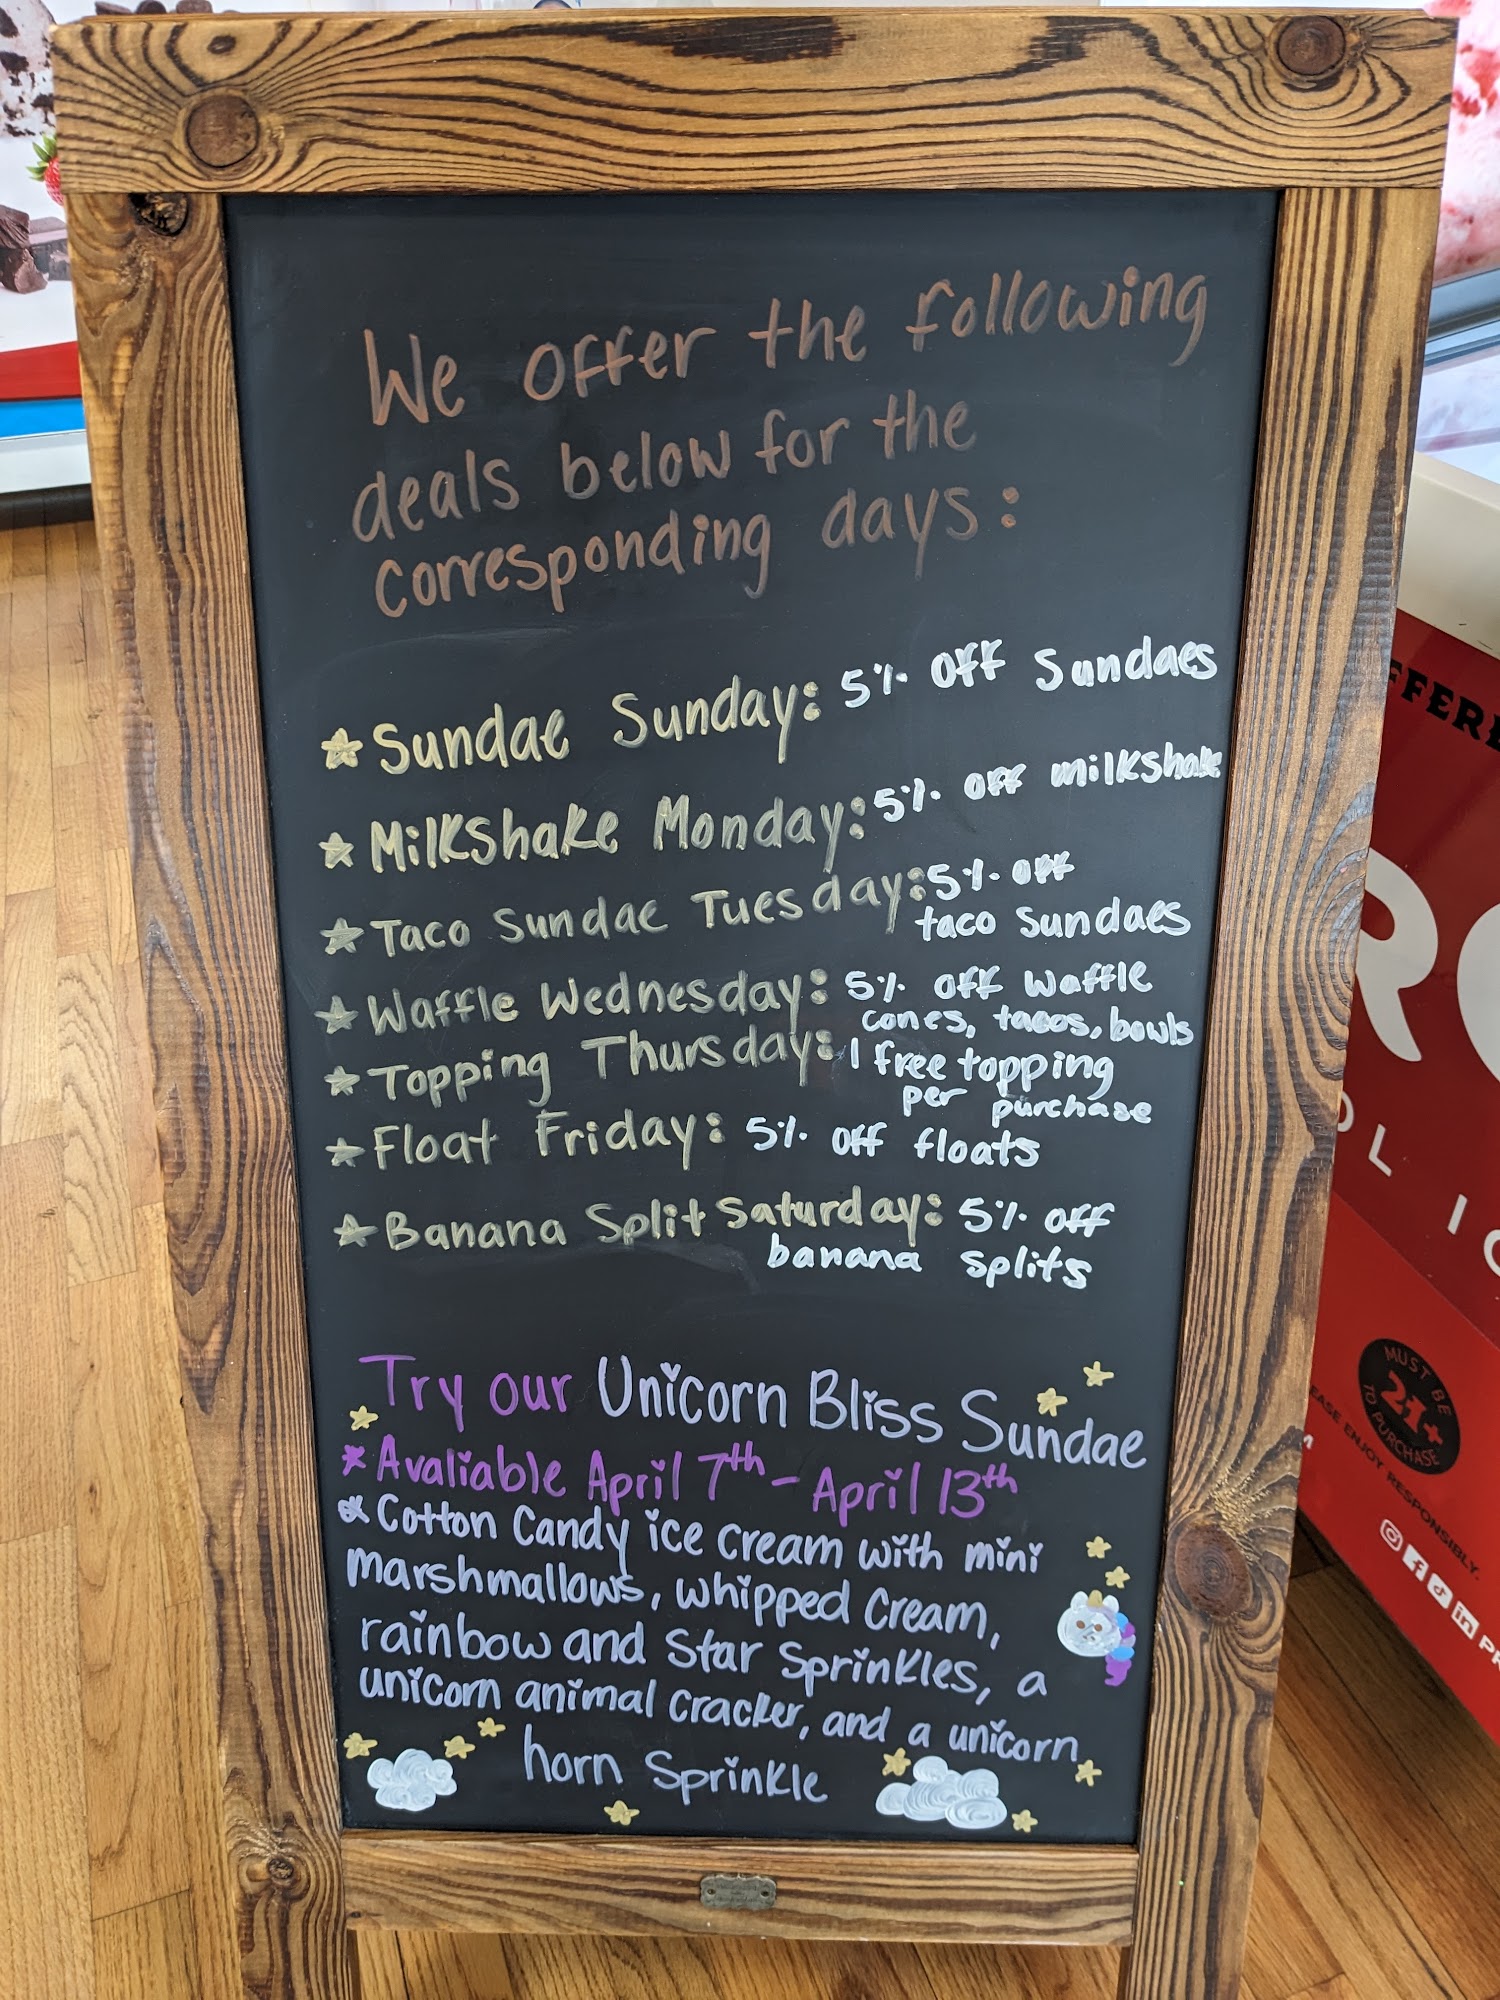 We offer the following
deals below for the
corresponding days:
Sundae Sunday: 5% off Sundaes
Milkshake Monday: 5% off milkshake
Taco Sundae Tuesday: 5% off
taco sundaes
Waffle Wednesday: 5% off waffle
cones, tacos, bowls
Topping Thursday: 1 free topping
per purchase
Float Friday: 5% off floats
Banana Split Saturday: 5% off
banana splits
Try our Unicorn Bliss Sundae
*Avaliable April 7th - April 13th
*Cotton Candy ice cream with mini
marshmallows, whipped cream,
rainbow and star sprinkles, a
unicorn animal cracker, and a unicorn
horn sprinkle
MUST BE
21+
TO PURCHASE
EASE ENJOY RESPONSIBLY.